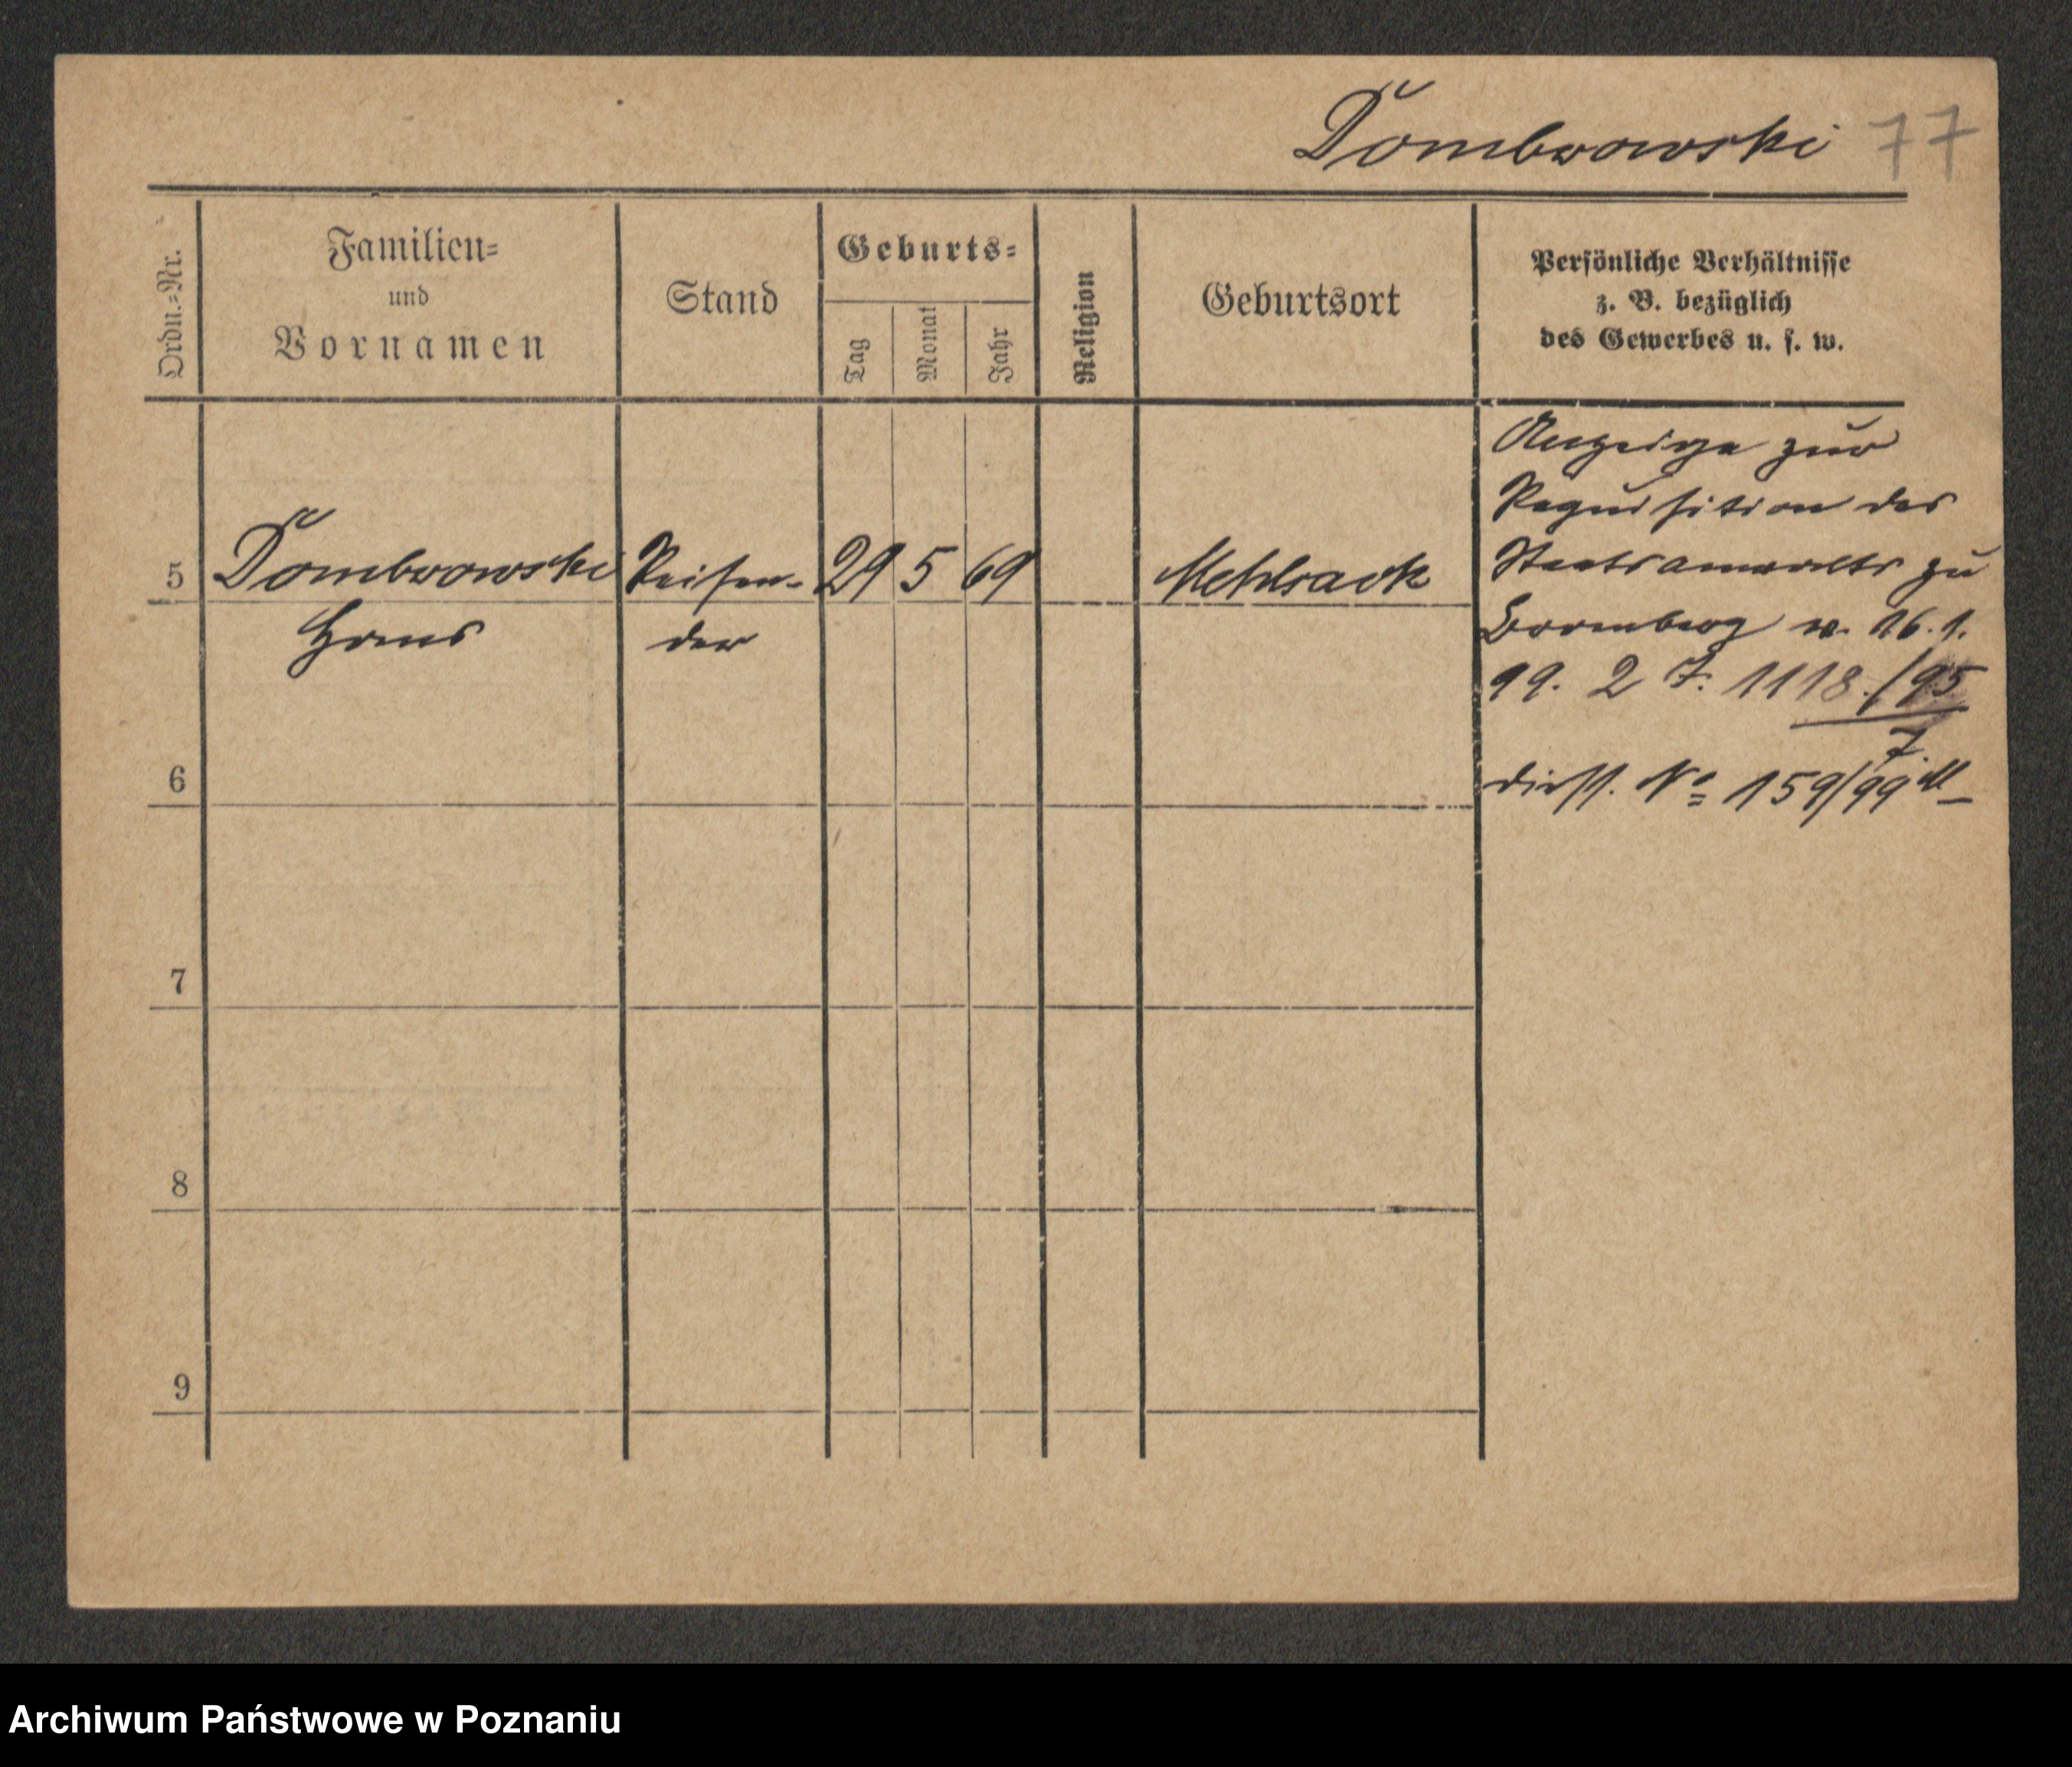 Dombrowski 77
Ordn.-Nr.
Familien-
und
Vornamen
Stand
Geburts-
Tag
Monat
Jahr
Religion
Geburtsort
Persönliche Verhältnisse
z. B. bezüglich
des Gewerbes u. s. w.
Anzeige zur
Requisition des
Staatsanwalts zu
16.1.
5 Dombrowski Reisen- 29 5 69 Mehlsack
Hans der
99. 2 J. 1118./95
6
No 159/99
7
8
9
Archiwum Państwowe w Poznaniu